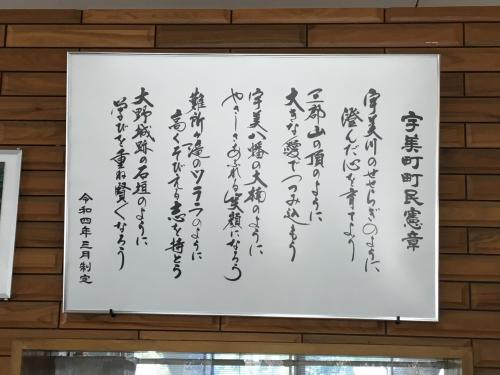 宇美町町民憲章
宇美川のせせらぎのように
澄んだ心を育てよう
三郡山の頂のように
大きな愛でつつみ込もう
宇美八幡の大楠のように
やさしさあふれる笑顔になろう
難所ヶ滝のツララのように
高くそびえる志を持とう
大野城跡の石垣のように
学びを重ね賢くなろう
令和四年三月制定